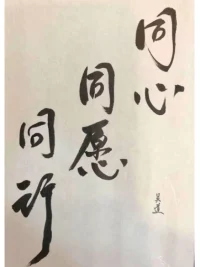 同心
同愿
同行